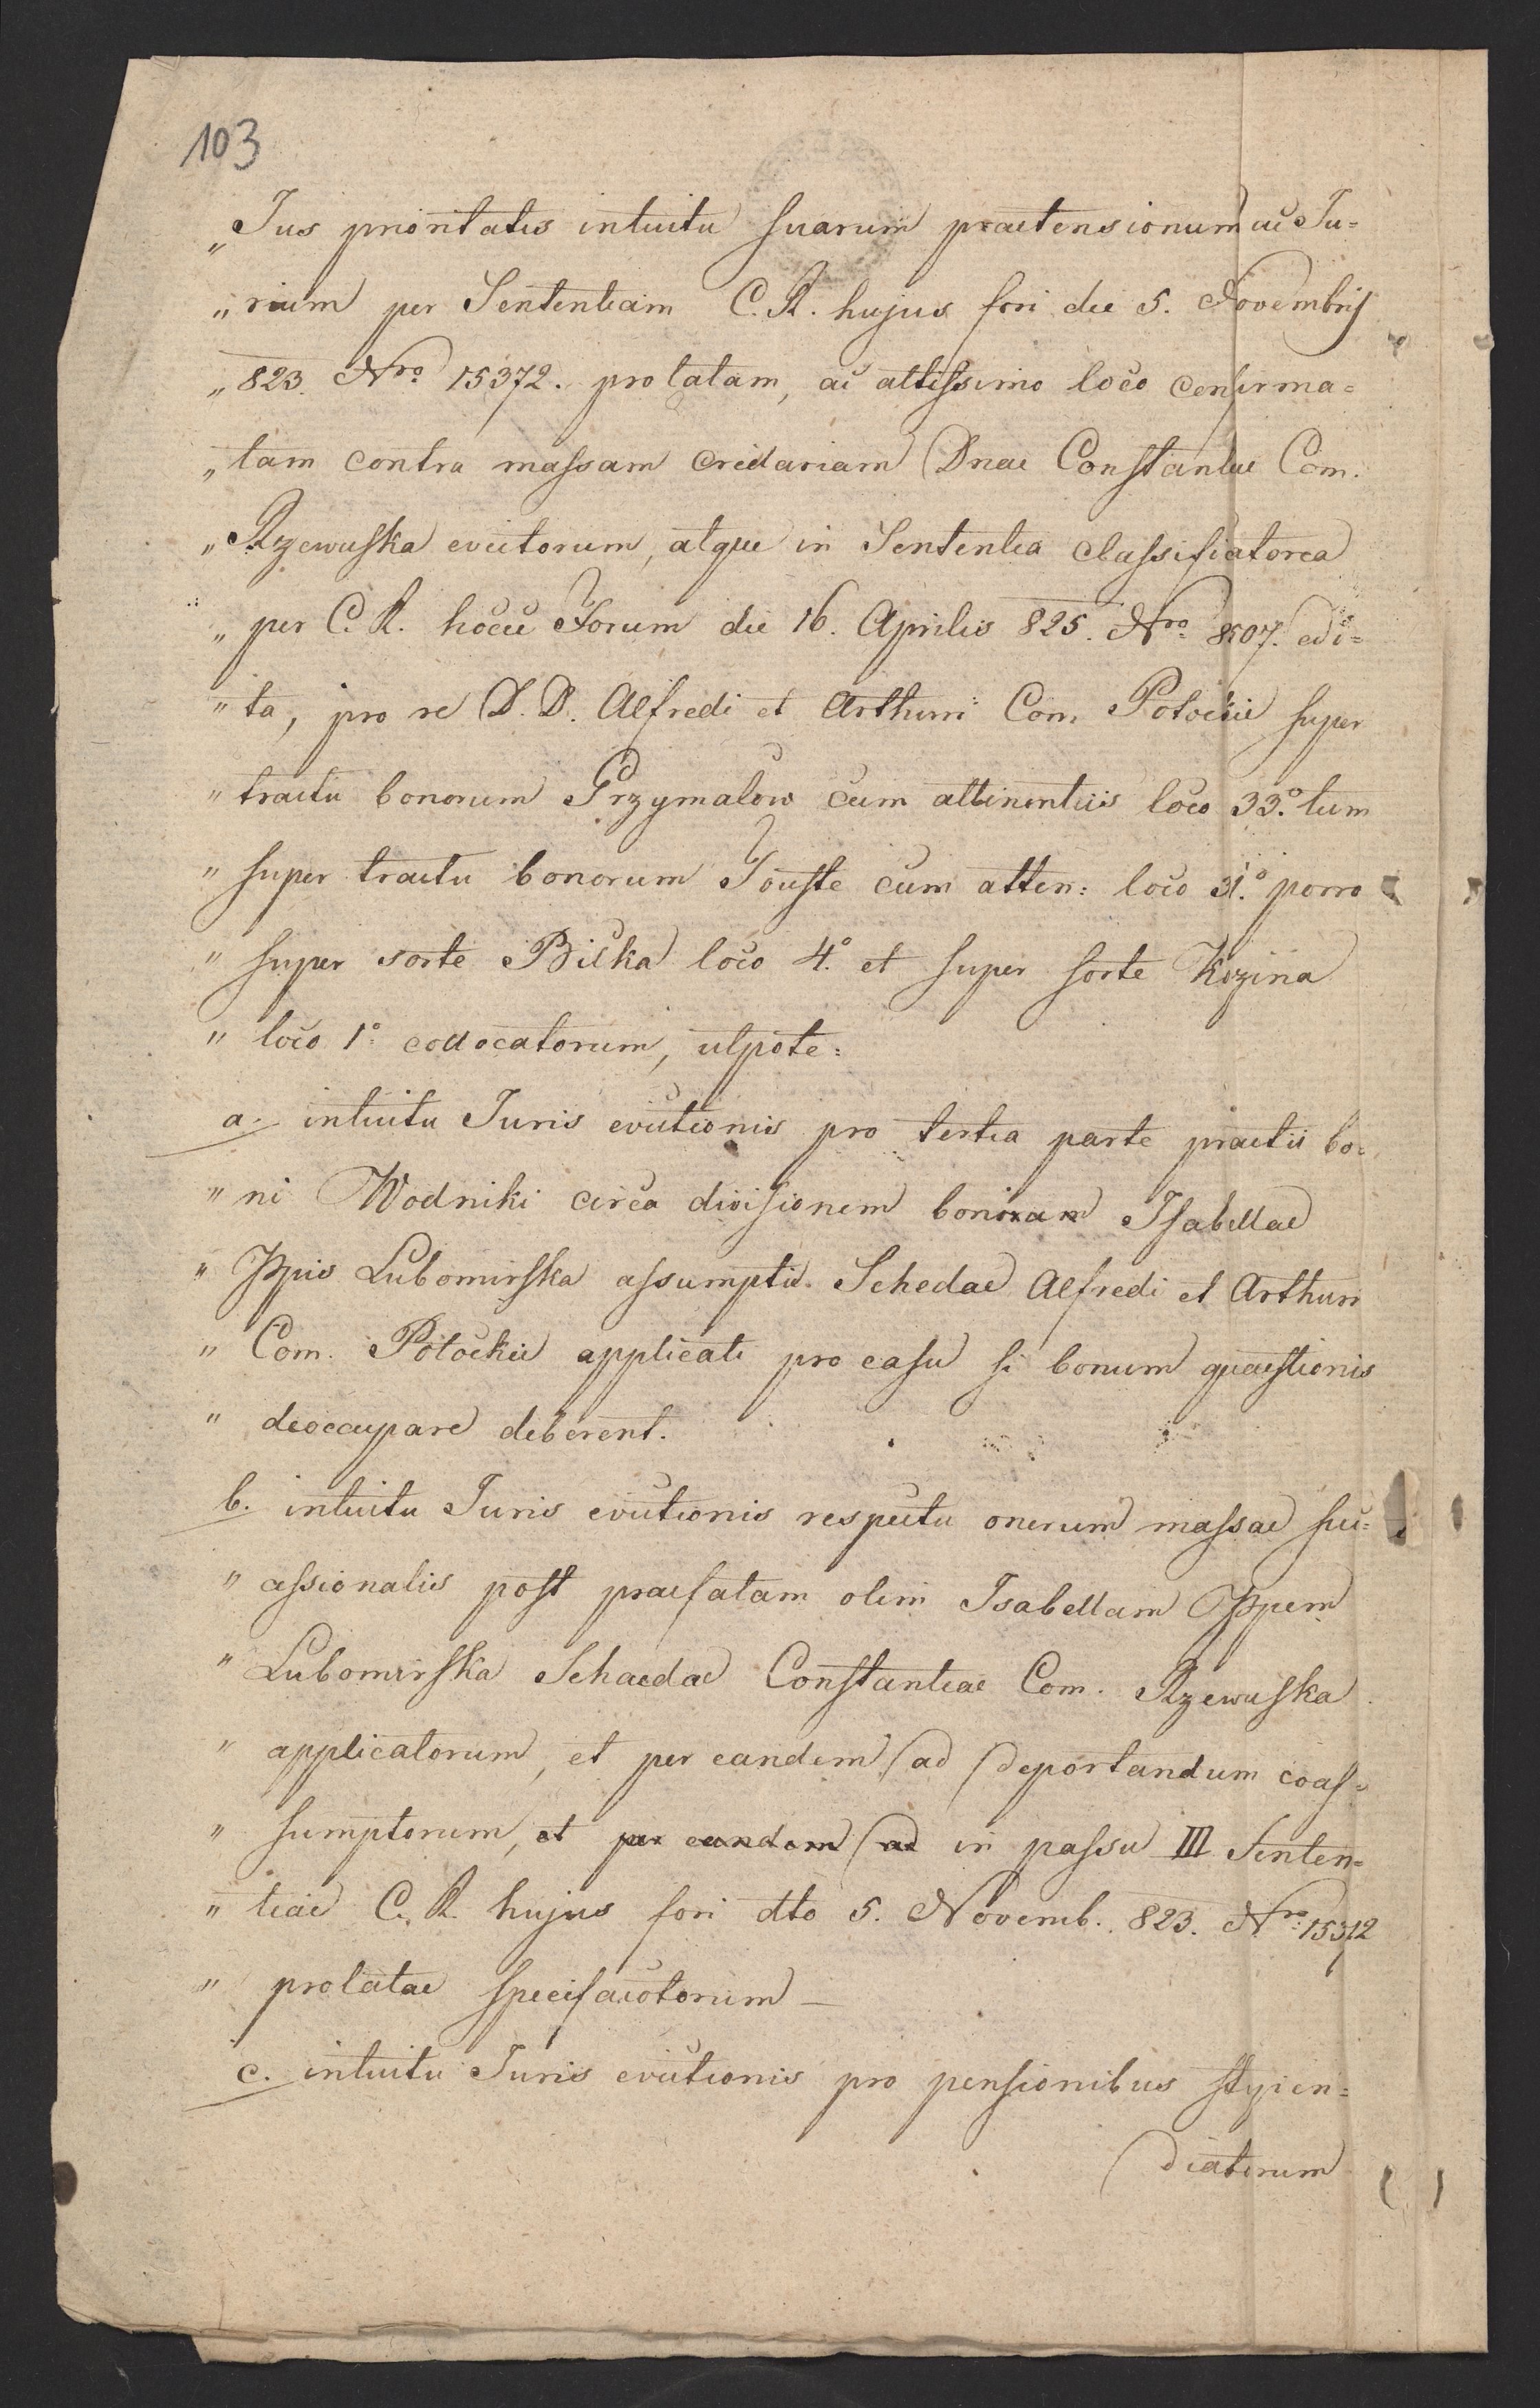 103
„Jus prioritatis intuitu suarum praetensionum ac Ju=
„rium per Sententiam C. R. hujus fori die 5. Novembris
„823. Nro 15372. prolatam, ac altissimo loco confirma=
„tam contra massam cridariam Dnae Constantiae Com.
„Rzewuska evictorum, atque in Sententia classificatoria
„per C. R. hocce Forum die 16. Aprilis 825. Nro 8507. edi=
„ta, pro re D. D. Alfredi et Arthuri Com. Potockie super
„tractu bonorum Grzymalow cum attinentiis loco 33.° tum
„super tractu bonorum Touste cum atten: loco 31.° porro
„super sorte Bicka loco 4.° et super sorte Kozina
„loco 1° collocatorum, utpote:
a. intuitu Juris evictionis pro tertia parte praetii bo=
„ni Wodniki circa divisionem bonoram Isabellae
„Ppis Lubomirska assumpti Schedae Alfredi et Arthuri
„Com. Potockie applicati pro casu si bonum quaestionis
„deoccupare deberent.
b. intuitu Juris evictionis respectu onerum massae suc=
„cessionalis post praefatam olim Isabellam Ppem
„Lubomirska Schaedae Constantiae Com. Rzewuska
„applicatorum, et per eandem ad deportandum coas=
„sumptorum, et per eandem ad in passu III Senten=
„tiae C. R. hujus fori dto 5. Novemb. 823. Nro 15372
„prolatae specificatorum —
c. intuitu Juris evictionis pro pensionibus stypen=
diatorum